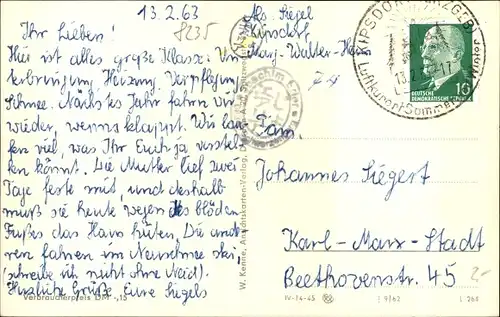 13.2.63
8235
Ihr Lieben!
Hier ist alles große Klasse: Un-
terbringung, Heizung, Verpflegung,
Schnee. Nächstes Jahr fahren wir
wieder, wenns klappt. Wir lau-
fen viel, was Ihr Euch ja vorstel-
len könnt. Die Mutter lief zwei
Tage feste mit, und deshalb
muß sie heute wegen des blöden
Fußes das Haus hüten. Die and-
ren fahren im Neuschnee Ski
(schreibe ich nicht ohne Neid).
Herzliche Grüße Eure Siegels
Verbraucherpreis DM -,15
W. Kenne, Ansichtskarten-Verlag,
Abs. Siegel
Kipsdorf
13.2.
Luftkurort
DEUTSCHE
DEMOKRATISCHE REPUBLIK
10
Fam.
Johannes Siegert
Karl-Marx-Stadt
Beethovenstr. 45
IV-14-45
J 9/62
L 264